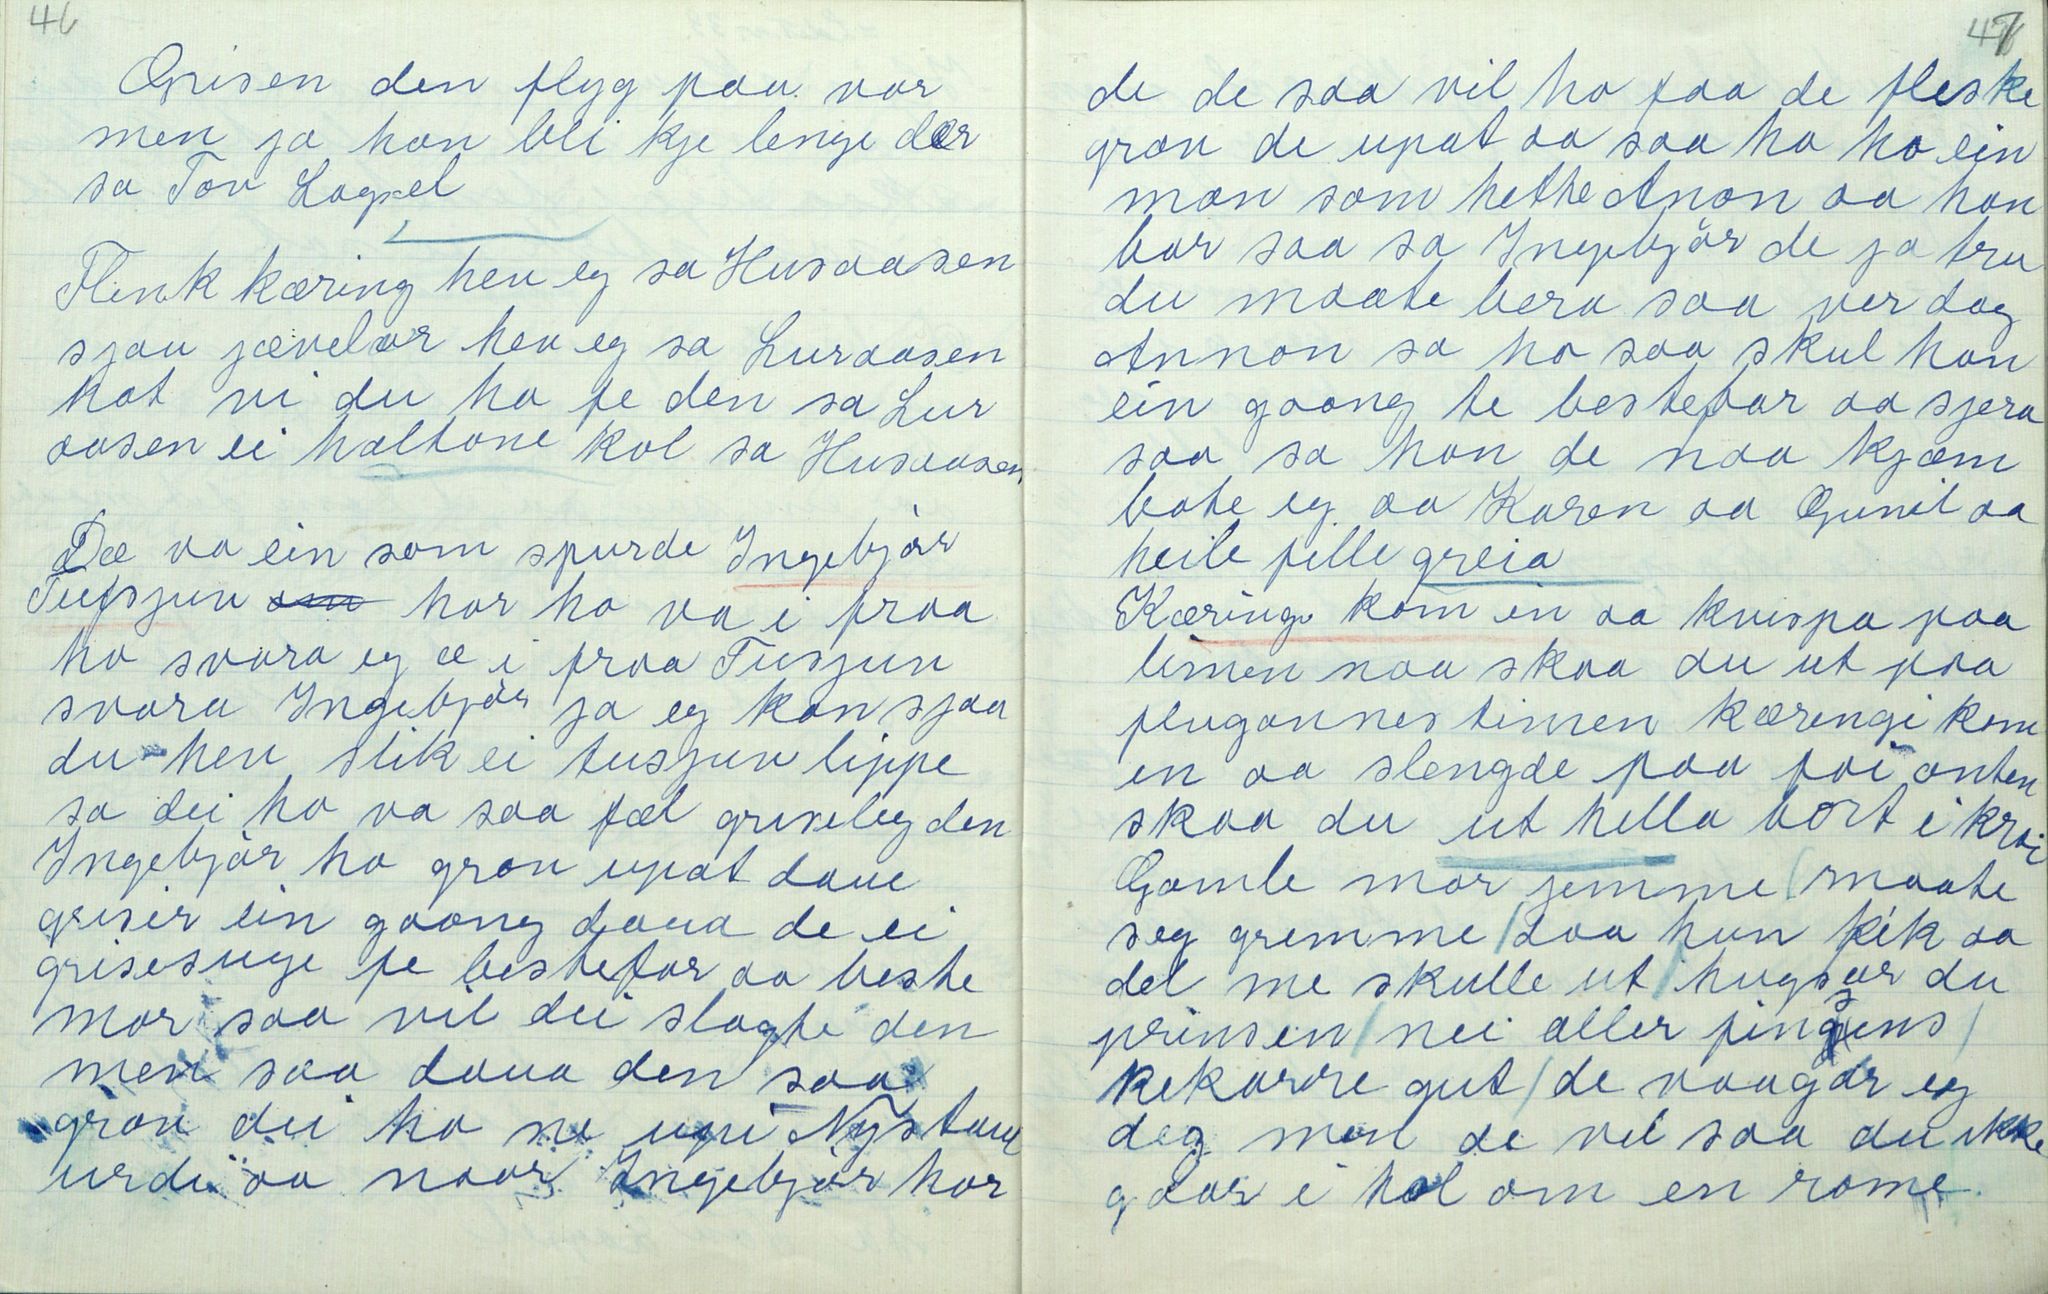 46
Grisen den flyg paa var
men ja han bli kje lenge der
sa Tov Lognel
Flink kæring hev eg sa Husaasen
sjau jævelar hev eg sa Luraasen
kat vi du ha fe den sa Lur
aasen ei haltone kol sa Husaasen
Dæ va ein som spurde Ingebjör
Tufsjun hor ho va i fraa
ho svara eg æ i fraa Tusjun
svara Ingebjör ja eg kan sjaa
du hev slik ei tusjun lippe
sa dei ho va saa fæl griseleg den
Ingebjör ho grov upat daue
griser ein goong daua de ei
grisesuge fe bestefar aa beste
mor saa vil dei slagte den
men saa daua den saa
grov dei ho ne upi Nystaul
urdi aa naar Ingebjör hör
47
de de saa vil ho faa de fleske
grov de upat aa saa ha ho ein
man som hethe Anon aa han
bar saa sa Ingebjör de ja tru
du maate bera saa ver dag
Annon sa ho saa skul han
ein goong te bestefar aa sjera
saa sa han de naa kjæm
bate eg aa Karen aa Gunil aa
heile fille greia
Kæringi kom in aa kvispa paa
limen naa skaa du ut paa
flugannes timen kærengi kom
en aa slengde paa foi onten
skaa du ut hella bort i kroi
Gamle mor jemme / maate
seg gremme / Daa hun fik aa
del me skulle ut / hugsar du
prinsen / nei aller pingsens /
kekarre gut / de vaagar eg
deg men de vil saa du ikke
gaar i hol om en rome